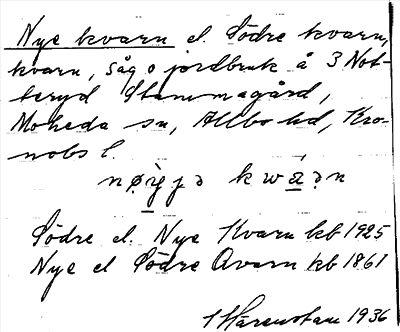 Nye kvarn el. Södre kvarn,
kvarn, såg o jordbruk å 3 Not-
teryd Stommagård,
Moheda sn, Allbo hd, Kro-
nobs l.
Södre el. Nye Kvarn kb 1925
Nye el Södre Qvarn kb 1861
1936